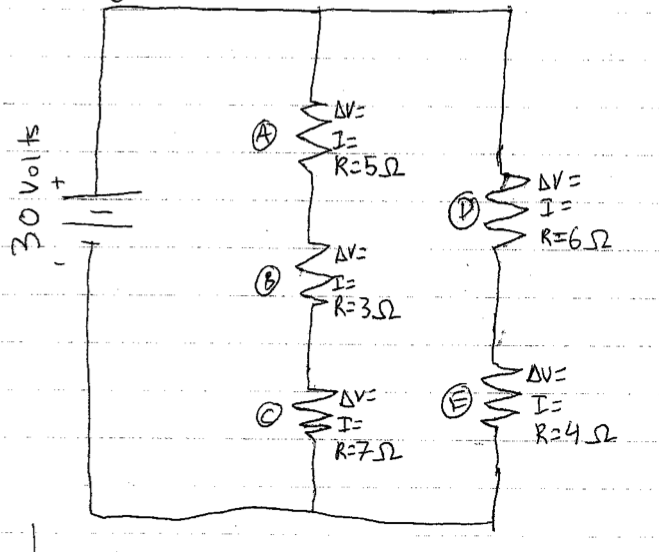 30 Volts
+
-
A
ΔV=
I=
R=5Ω
B
ΔV=
I=
R=3Ω
C
ΔV=
I=
R=7Ω
D
ΔV=
I=
R=6Ω
E
ΔV=
I=
R=4Ω